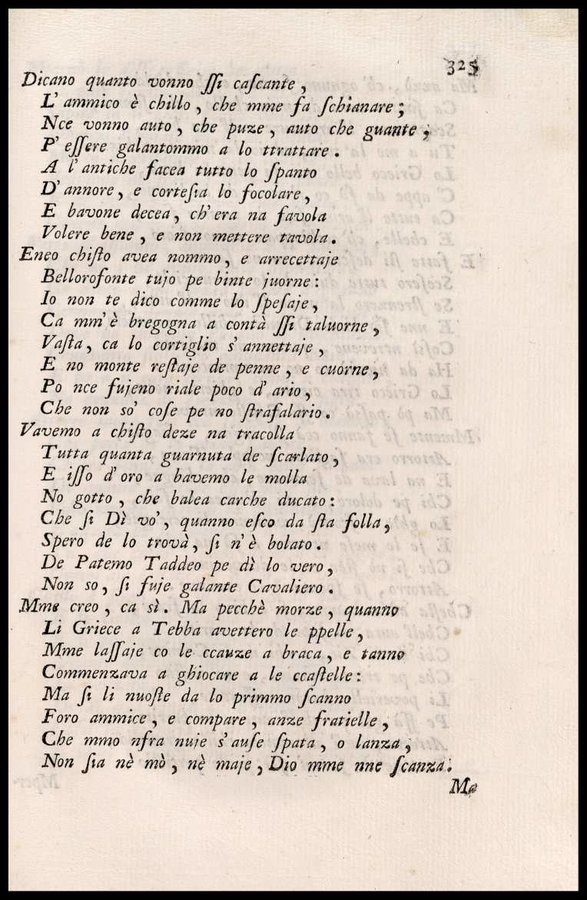 325
Dicano quanto vonno ſſi caſcante,
L' ammico è chillo, che mme fa ſchianare;
Nce vonno auto, che puze, auto che guante,
P' eſſere galantommo a lo ttrattare.
A l' antiche facea tutto lo ſpanto
D' annore, e corteſia lo focolare,
E bavone decea, ch' era na favola
Volere bene, e non mettere tavola.
Eneo chiſto avea nommo, e arrecettaje
Bellorofonte tujo pe binte juorne:
Io non te dico comme lo ſpeſaje,
Ca mm' è bregogna a contà ſſi taluorne,
Vaſta, ca lo cortiglio s' annettaje,
E no monte reſtaje de penne, e cuorne,
Po nce fujeno riale poco d' ario,
Che non so' coſe pe no ſtrafalario.
Vavemo a chiſto deze na tracolla
Tutta quanta guarnuta de ſcarlato,
E iſſo d' oro a bavemo le molla
No gotto, che balea carche ducato:
Che ſi Dì vo', quanno eſco da ſta folla,
Spero de lo trovà, ſi n' è bolato.
De Patemo Taddeo pe dì lo vero,
Non so, ſi fuje galante Cavaliero.
Mme creo, ca sì. Ma pecchè morze, quanno
Li Griece a Tebba avettero le ppelle,
Mme laſſaje co le ccauze a braca, e tanno
Commenzava a ghiocare a le ccaſtelle:
Ma ſi li nuoſte da lo primmo ſcanno
Foro ammice, e compare, anze fratielle,
Che mmo nfra nuje s' auſe ſpata, o lanza,
Non ſia nè mò, nè maje, Dio mme nne ſcanza.
Ma